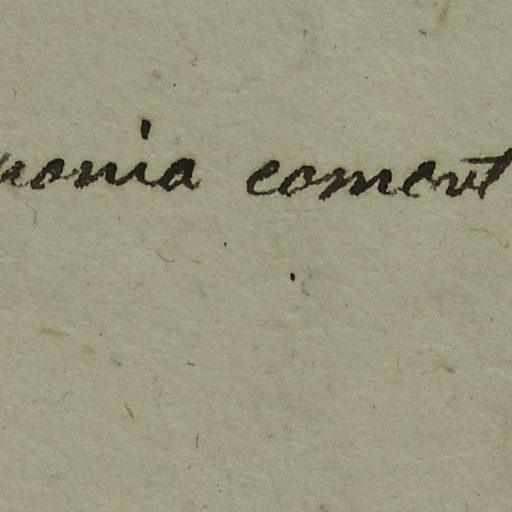 nonia comert